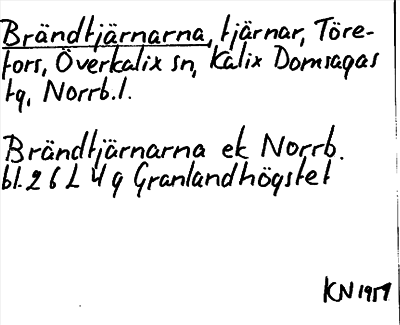 Brändtjärnarna, tjärnar, Töre-
fors, Överkalix sn, Kalix Domsagas
tg, Norrb.l.
Brändtjärnarna ek Norrb.
bl. 26 L 4 g Granlandhögstet
KN 1959